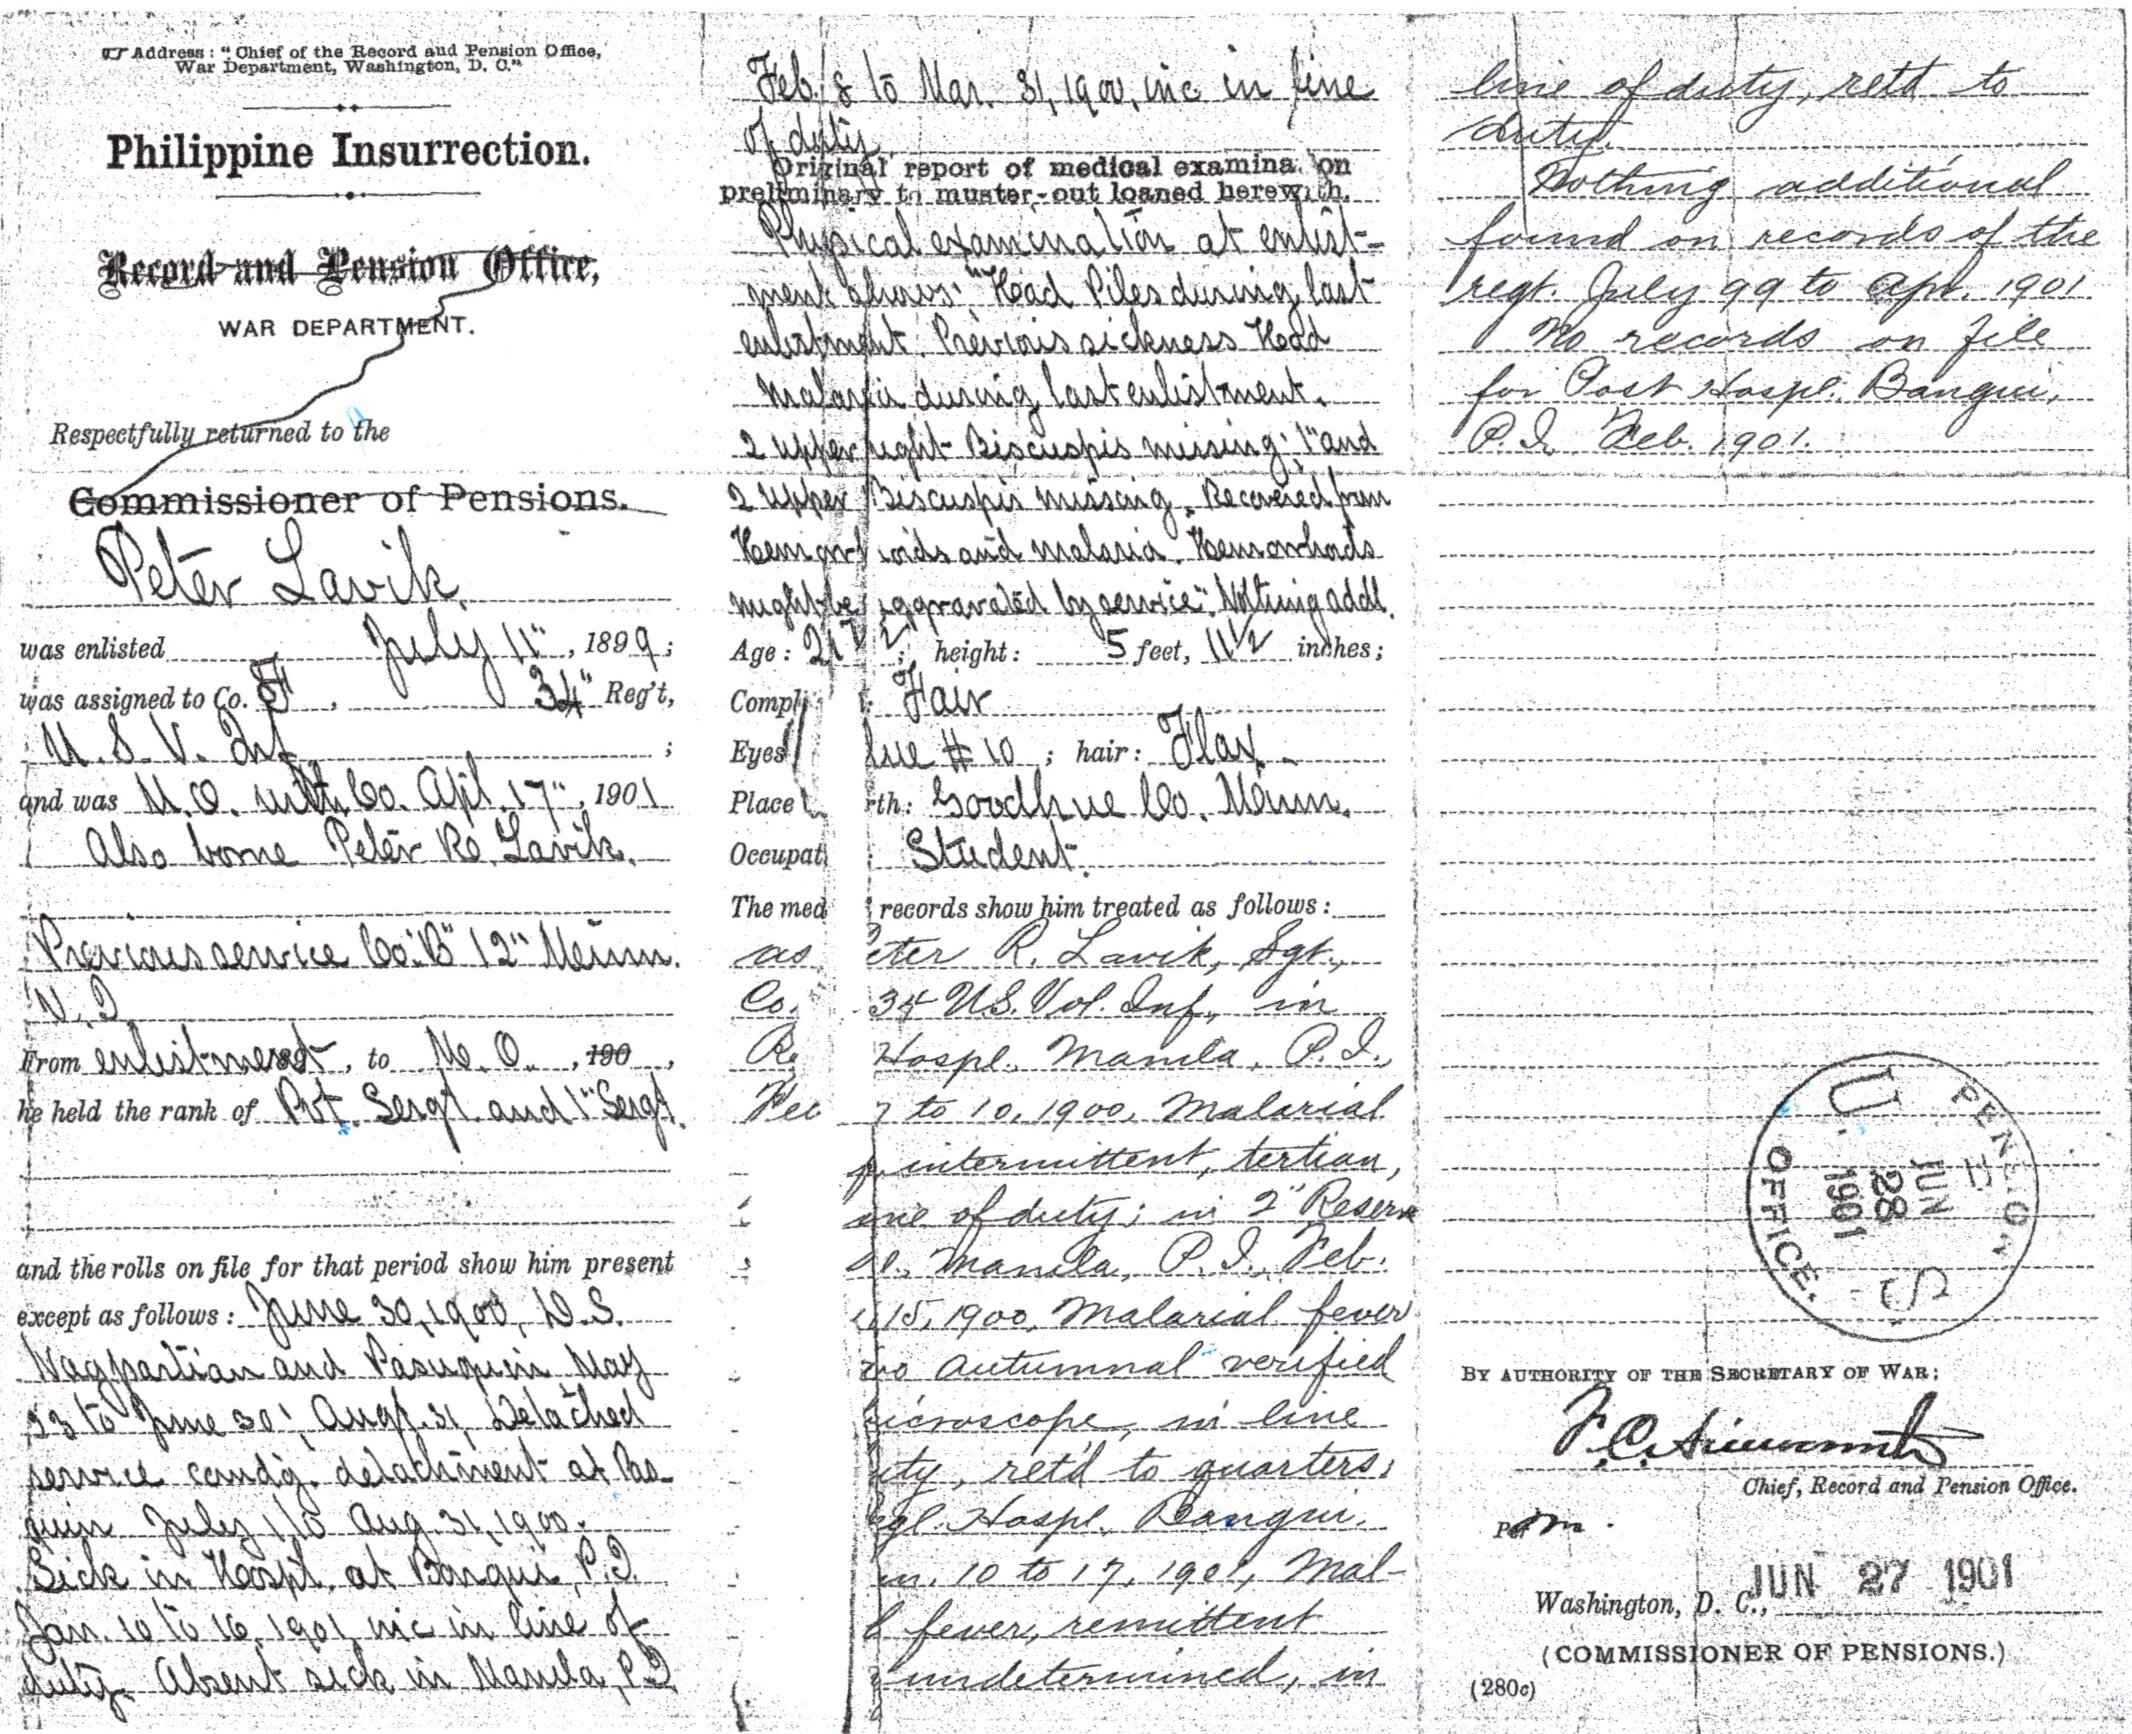 Address: "Chief of the Record and Pension Office,
War Department, Washington, D. C."
Philippine Insurrection.
Record and Pension Office,
WAR DEPARTMENT.
Respectfully returned to the
Commissioner of Pensions.
Peter Lavik,
was enlisted July 11", 1899;
was assigned to Co. F, 34" Reg't,
U. S. V. Inf.;
and was M. O. with Co. Apl. 17", 1901
Also borne Peter R. Lavik.
Previous service Co. "B" 12" Minn.
V. I.
From enlistment, 189 , to M. O., 190 ,
he held the rank of Pvt. Sergt. and 1" Sergt.
and the rolls on file for that period show him present
except as follows: June 30, 1900, D.S.
Nagpartian and Pasuquin May
23 to June 30; Augt. 31, Detached
service comdg. detachment at Pas-
quin July 1 to Aug. 31, 1900.
Sick in Hospt. at Bangui, P.I.
Jan. 10 to 16, 1901, inc in line of
duty. Absent sick in Manila, P.I.
Feb. 8 to Mar. 31, 1900, inc in line
of duty.
Original report of medical examina on
preliminary to muster-out loaned herewith.
Physical examination at enlist-
ment shows: "Had Piles during last
enlistment. Previois sickness Had
Malaria during last enlistment.
2 upper right Biscuspis missing; 1" and
2 upper Biscuspis missing. Recovered from
Hemorr oids and malaria. Hemorrhoids
might be aggravated by service". Nothing addl.
Age: 21 ; height: 5 feet, 11 1/2 inches;
Compl : Fair
Eyes lue # 10; hair: Flax.
Place rth: Goodhue Co. Minn.
Occupat : Student.
The med records show him treated as follows:
as eter R. Lavik, Sgt.,
Co. 34 U.S. Vol. Inf., in
Re Hospl., Manila, P.I.,
Fe 7 to 10, 1900, Malarial
intermittent, tertian,
ine of duty; in 2" Reserve
Manila, P.I., Feb.
15, 1900, Malarial fever
vo autumnal verified
icroscope, in line
uty, ret'd to quarters;
gl. Hospl. Bangui,
n. 10 to 17, 1901, Mal-
l fever, remittent
undetermined, in
line of duty, retd to
duty.
Nothing additional
found on records of the
regt. July 99 to Apr. 1901
No records on file
for Post Hospl. Bangui,
P.I. Feb. 1901.
U. S. PENSION OFFICE.
JUN 28 1901
BY AUTHORITY OF THE SECRETARY OF WAR:
F. C. Ainsworth
Chief, Record and Pension Office.
Per m.
Washington, D. C., JUN 27 1901
(COMMISSIONER OF PENSIONS.)
(280c)